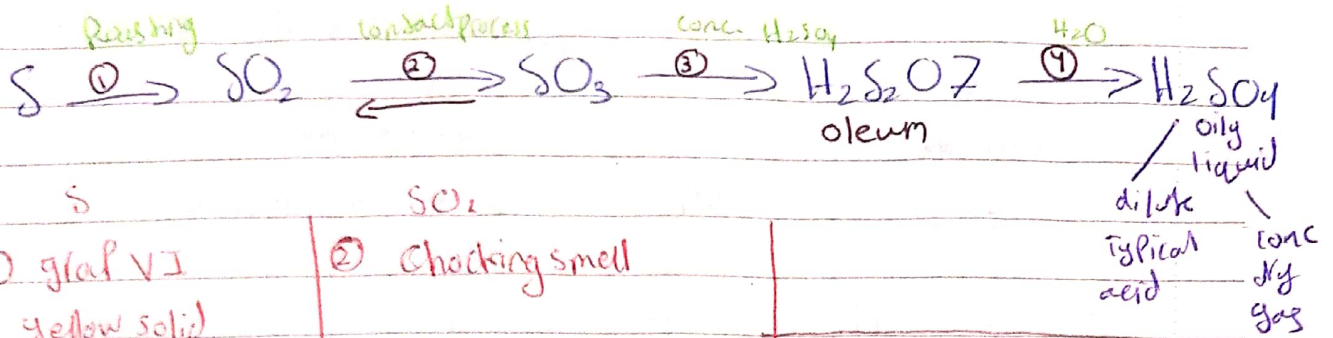 Roasting contact process conc. H2SO4 H2O
S ① → SO2 ② ⇌ SO3 ③ → H2S2O7 ④ → H2SO4
oleum
oily
liquid
dilute
Typical
acid
conc
gas
S SO2
VI
yellow solid
② Chocking smell